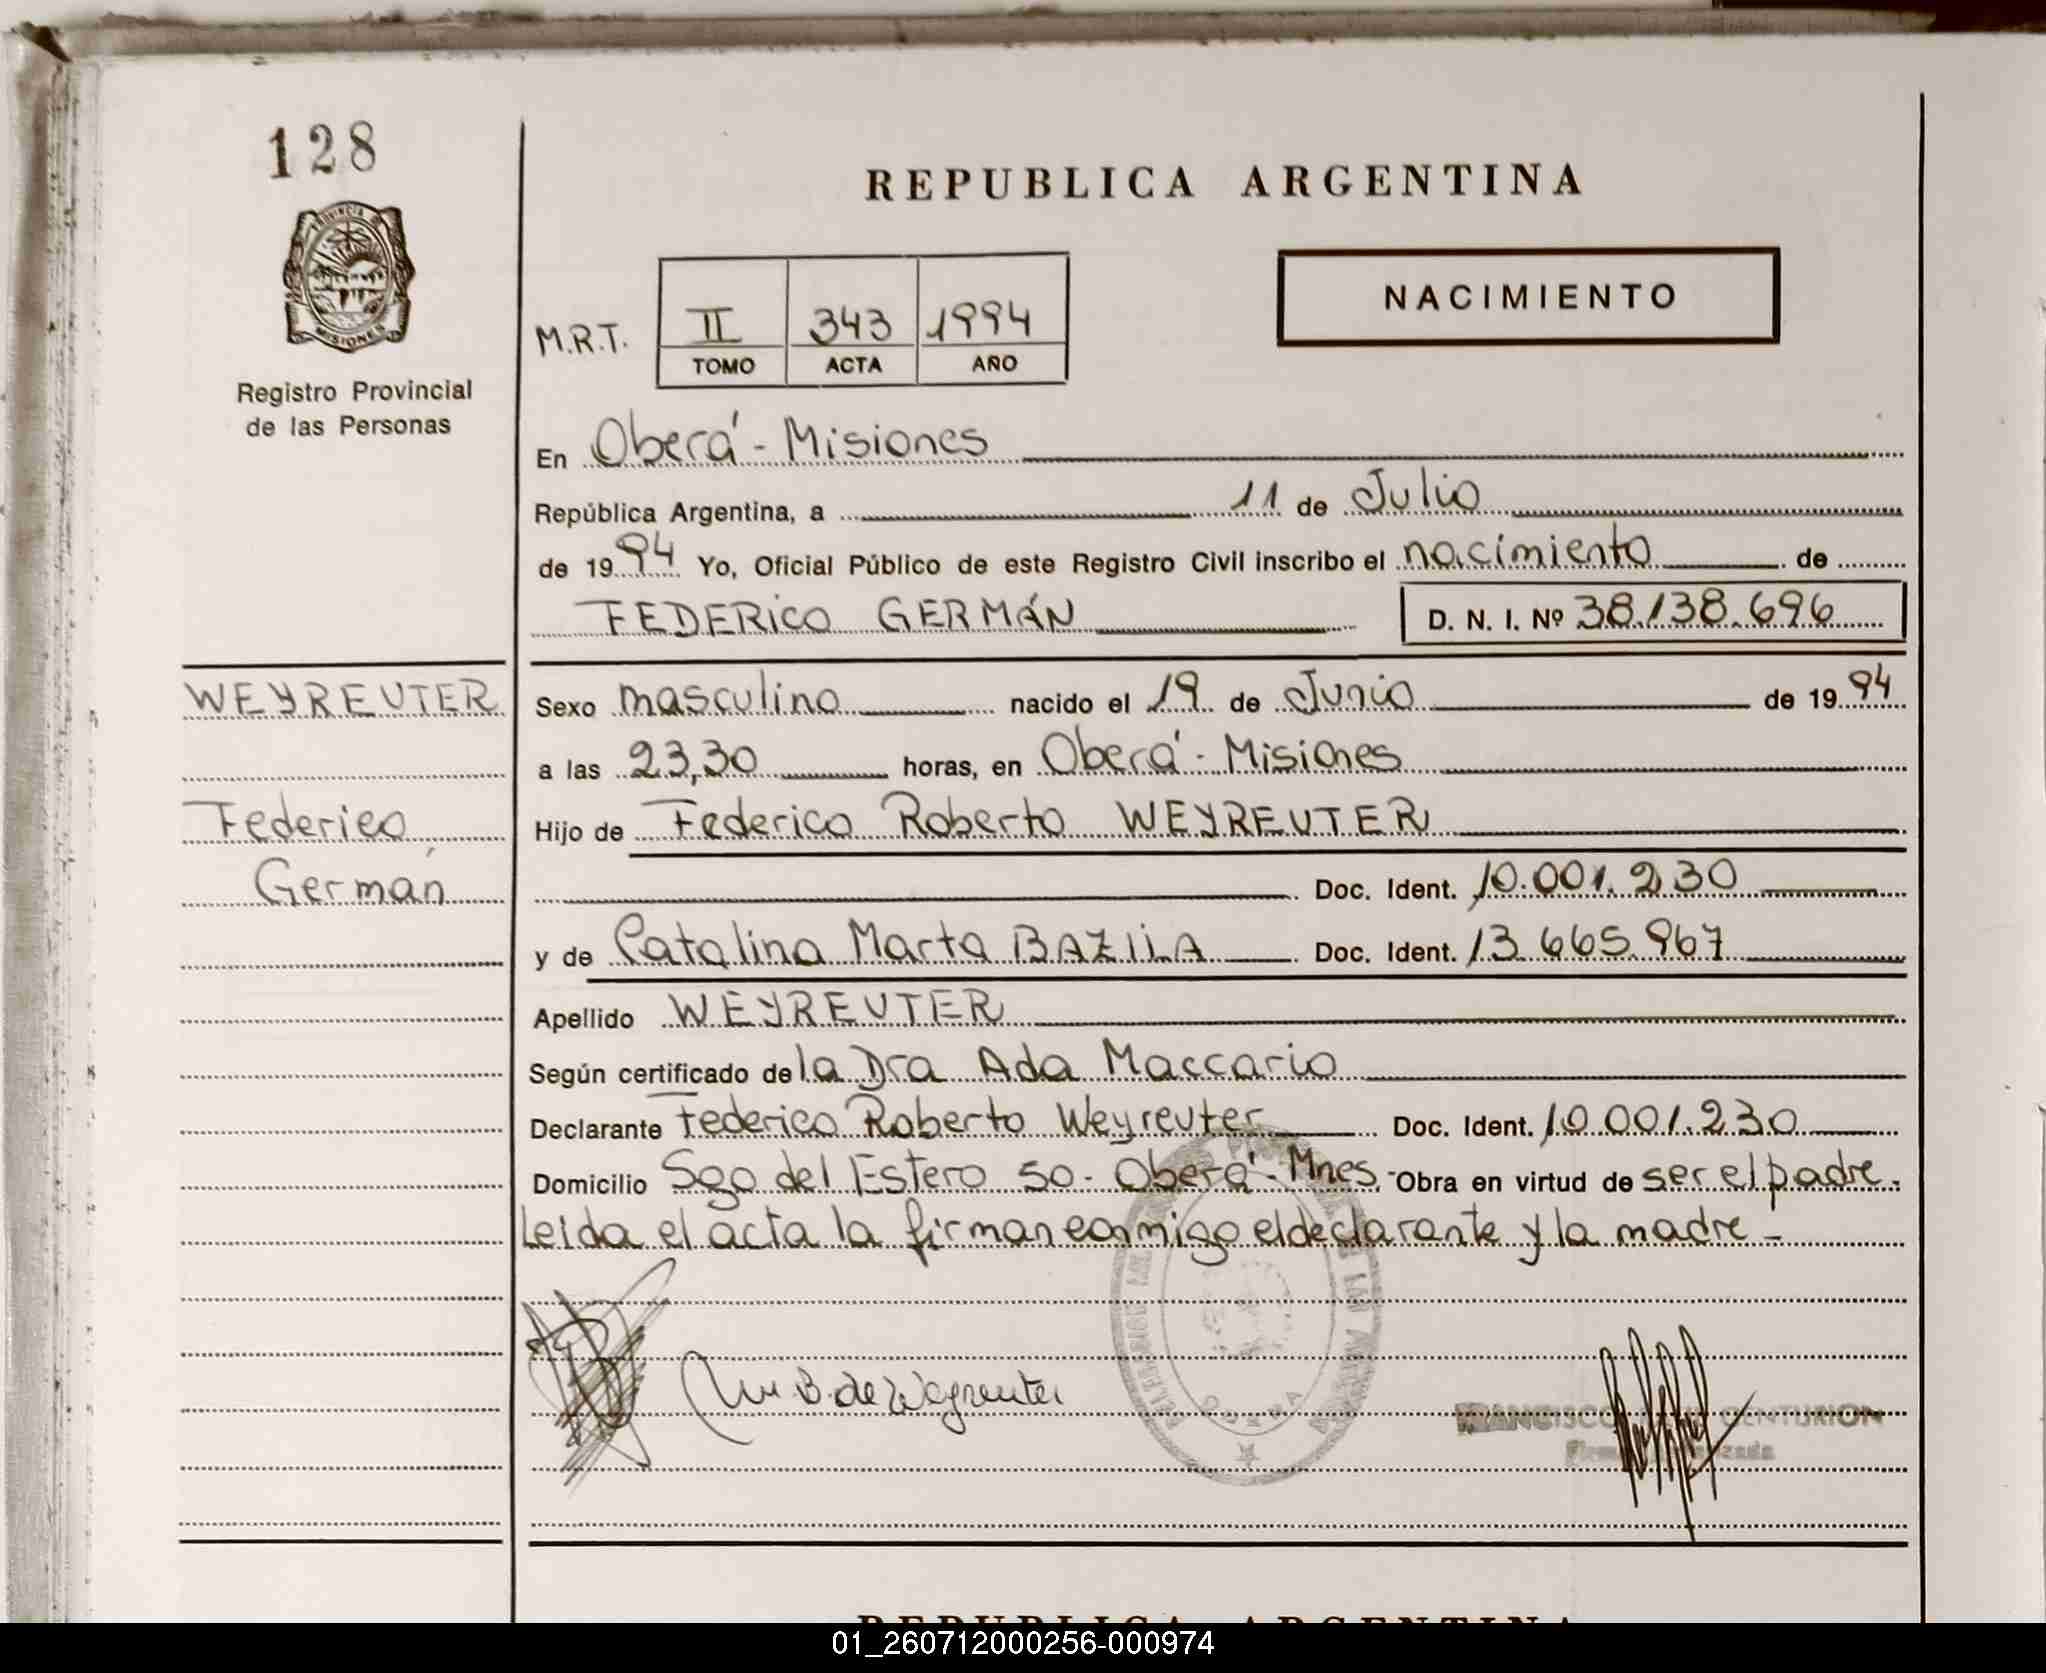 128
REPUBLICA ARGENTINA
PROVINCIA DE
MISIONES
Registro Provincial
de las Personas
M.R.T. II 343 1994
TOMO ACTA AÑO
NACIMIENTO
En Oberá - Misiones
República Argentina, a 11 de Julio
de 1994 Yo, Oficial Público de este Registro Civil inscribo el nacimiento de
FEDERICO GERMÁN D. N. I. Nº 38.138.696
WEYREUTER
Federico
Germán
Sexo masculino nacido el 19 de Junio de 1994
a las 23,30 horas, en Oberá - Misiones
Hijo de Federico Roberto WEYREUTER
Doc. Ident. 10.001.230
y de Catalina Marta Doc. Ident. 13.665.967
Apellido WEYREUTER
Según certificado de la Dra Ada Maccario
Declarante Federico Roberto Weyreuter Doc. Ident. 10.001.230
Domicilio Sgo del Estero 50 - Oberá - Mnes. - Obra en virtud de ser el padre.
Leida el acta la firman conmigo el declarante y la madre -
B. de Weyreuter
FRANCISCO CENTURION
REPUBLICA ARGENTINA
01_260712000256-000974